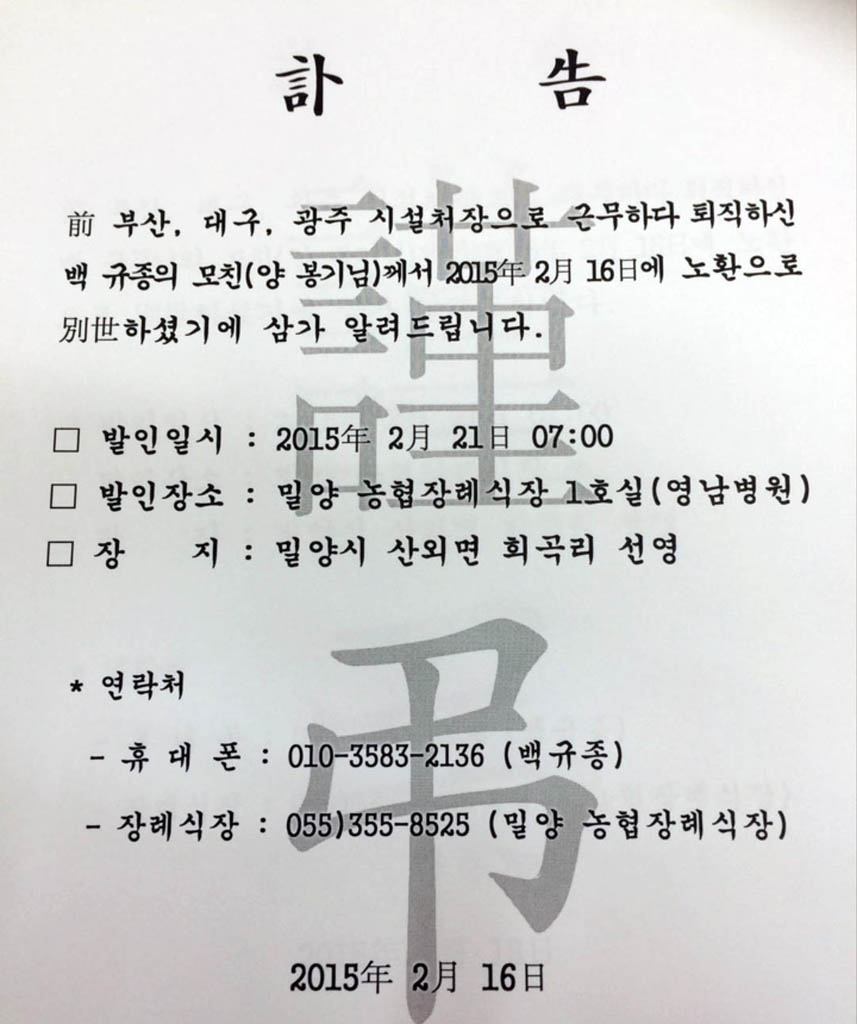 訃 告
謹
弔
前 부산, 대구, 광주 시설처장으로 근무하다 퇴직하신
백 규종의 모친(양 봉기님)께서 2015年 2月 16日에 노환으로
別世하셨기에 삼가 알려드립니다.
□ 발인일시 : 2015年 2月 21日 07:00
□ 발인장소 : 밀양 농협장례식장 1호실(영남병원)
□ 장 지 : 밀양시 산외면 희곡리 선영
* 연락처
- 휴 대 폰 : 010-3583-2136 (백규종)
- 장례식장 : 055)355-8525 (밀양 농협장례식장)
2015年 2月 16日